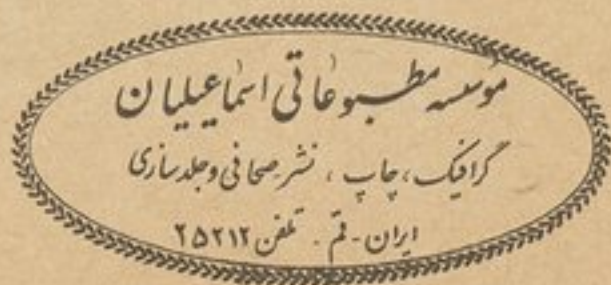 مؤسسه مطبوعاتی اسماعیلیان
گرافیک، چاپ، نشر صحافی و جلدسازی
ایران - قم - تلفن ۲۵۲۱۲